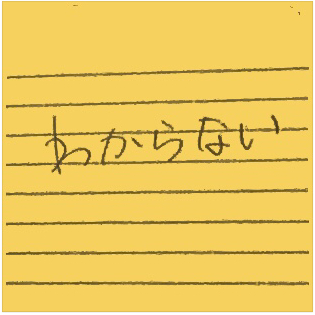 わからない